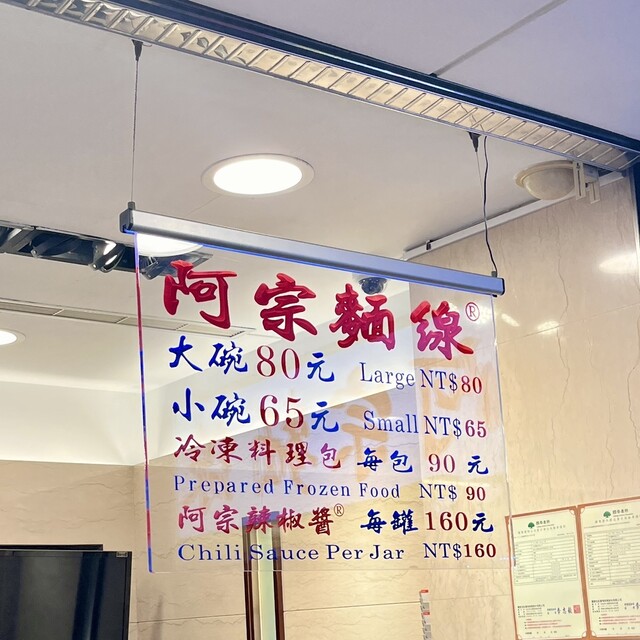 阿宗麵線®
大碗80元 Large NT$80
小碗65元 Small NT$65
冷凍料理包 每包 90 元
Prepared Frozen Food NT$ 90
阿宗辣椒醬® 每罐160元
Chili Sauce Per Jar NT$160